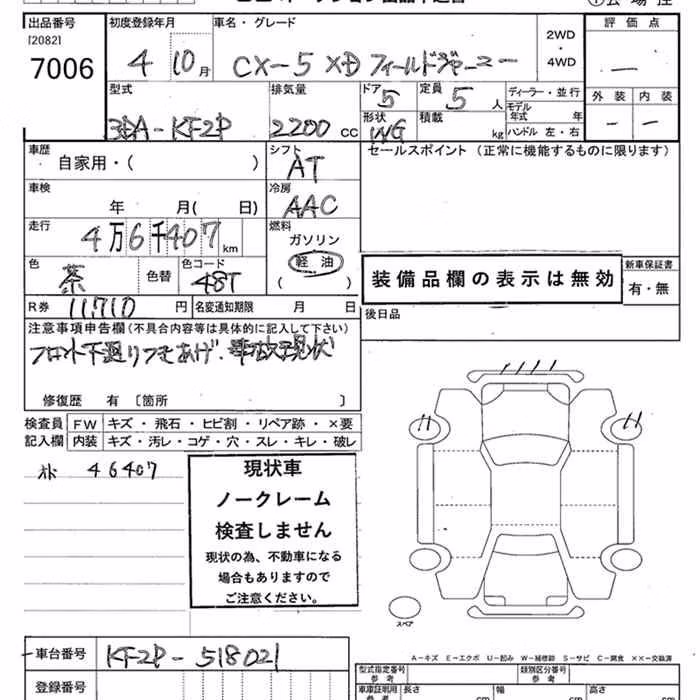 出品番号 初度登録年月 車名・グレード 評価点
[2082]
7006 4 10月 CX-5 XD フィールドジャーニー 2WD ・ 4WD —
型式 排気量 ドア 定員 ディーラー・並行 外装 内装
3DA-KF2P 2200 CC 5 5人 モデル年式 年 — —
形状 WG 積載 kg ハンドル 左・右
車歴 シフト セールスポイント (正常に機能するものに限ります)
自家用・( ) AT
車検 冷房
年 月( 日) AAC
走行 燃料
4万6千407km ガソリン
軽油
色 色替 色コード ( )
茶 48T
装備品欄の表示は無効
新車保証書
有・無
R券 11,710円 名変通知期限 月 日
後日品
注意事項申告欄(不具合内容等は具体的に記入して下さい)
フロント下廻りつきあげ.事故現状
修復歴 有 〔箇所 〕
検査員 FW キズ・飛石・ヒビ割・リペア跡・×要
記入欄 内装 キズ・汚レ・コゲ・穴・スレ・キレ・破レ
46407
現状車
ノークレーム
検査しません
現状の為、不動車になる
場合もありますので
ご注意ください。
スペア
A-キズ E-エクボ U-凹み W-補修跡 S-サビ C-腐食 ××-交換済
車台番号 KF2P-518021
登録番号
型式指定番号 参考 類別区分番号 参考
車庫証明用 参考 長さ cm 幅 cm 高さ cm